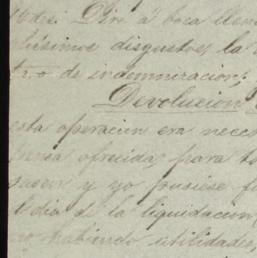 Dire á boca llen
disgustos, la
de indemnizacion;
Devolucion
esta operacion era nece
ofrecida, para
y yo pusiese
dia de la liquidacion
no habiendo utilidades,